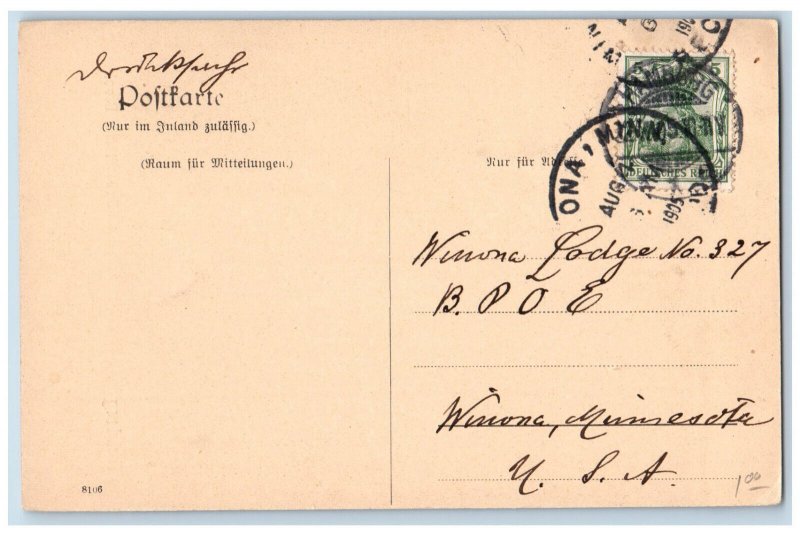 Drucksache
Postkarte
(Nur im Inland zulässig.)
(Raum für Mitteilungen.)
Nur für Adresse
5
HAMBURG
DEUTSCHES REICH
ONA, MINN.
AUG
1905
Winona Lodge No. 327
B. P O E
Winona, Minnesota
U. S. A.
8106
1 00